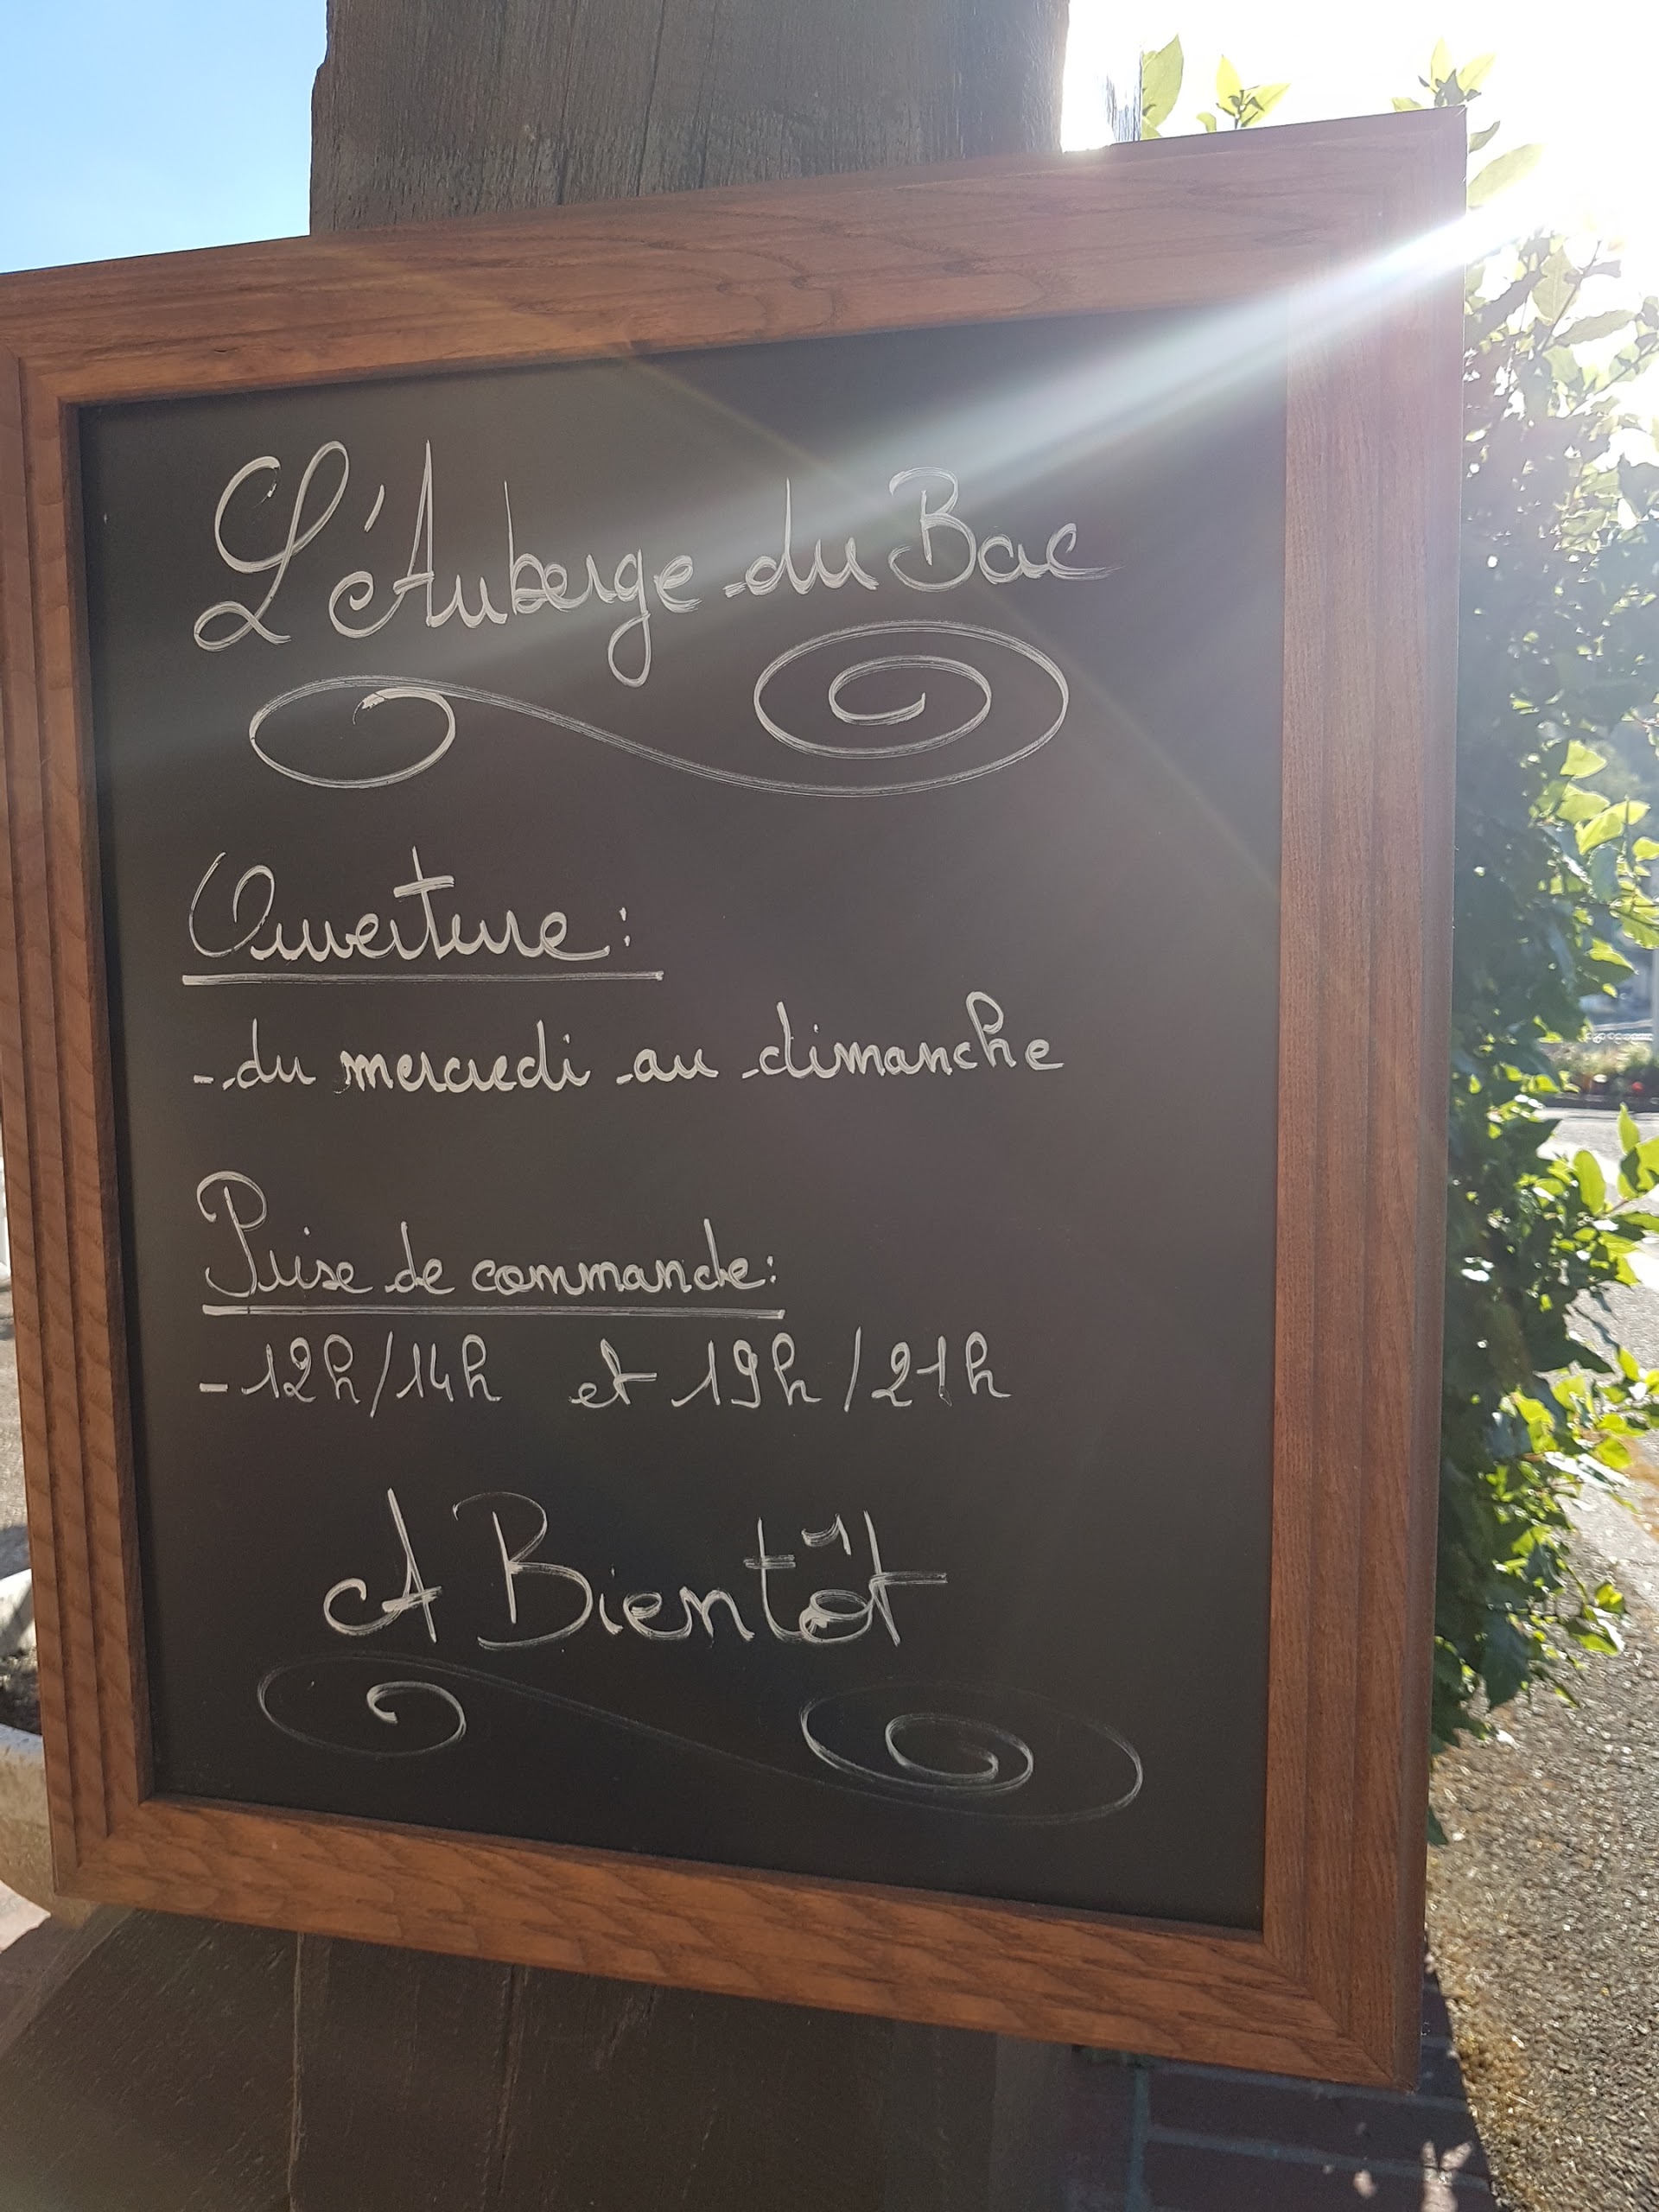 L'Auberge du Bac
Ouverture :
- du mercredi au dimanche
Prise de commande :
- 12h/14h et 19h/21h
A Bientôt